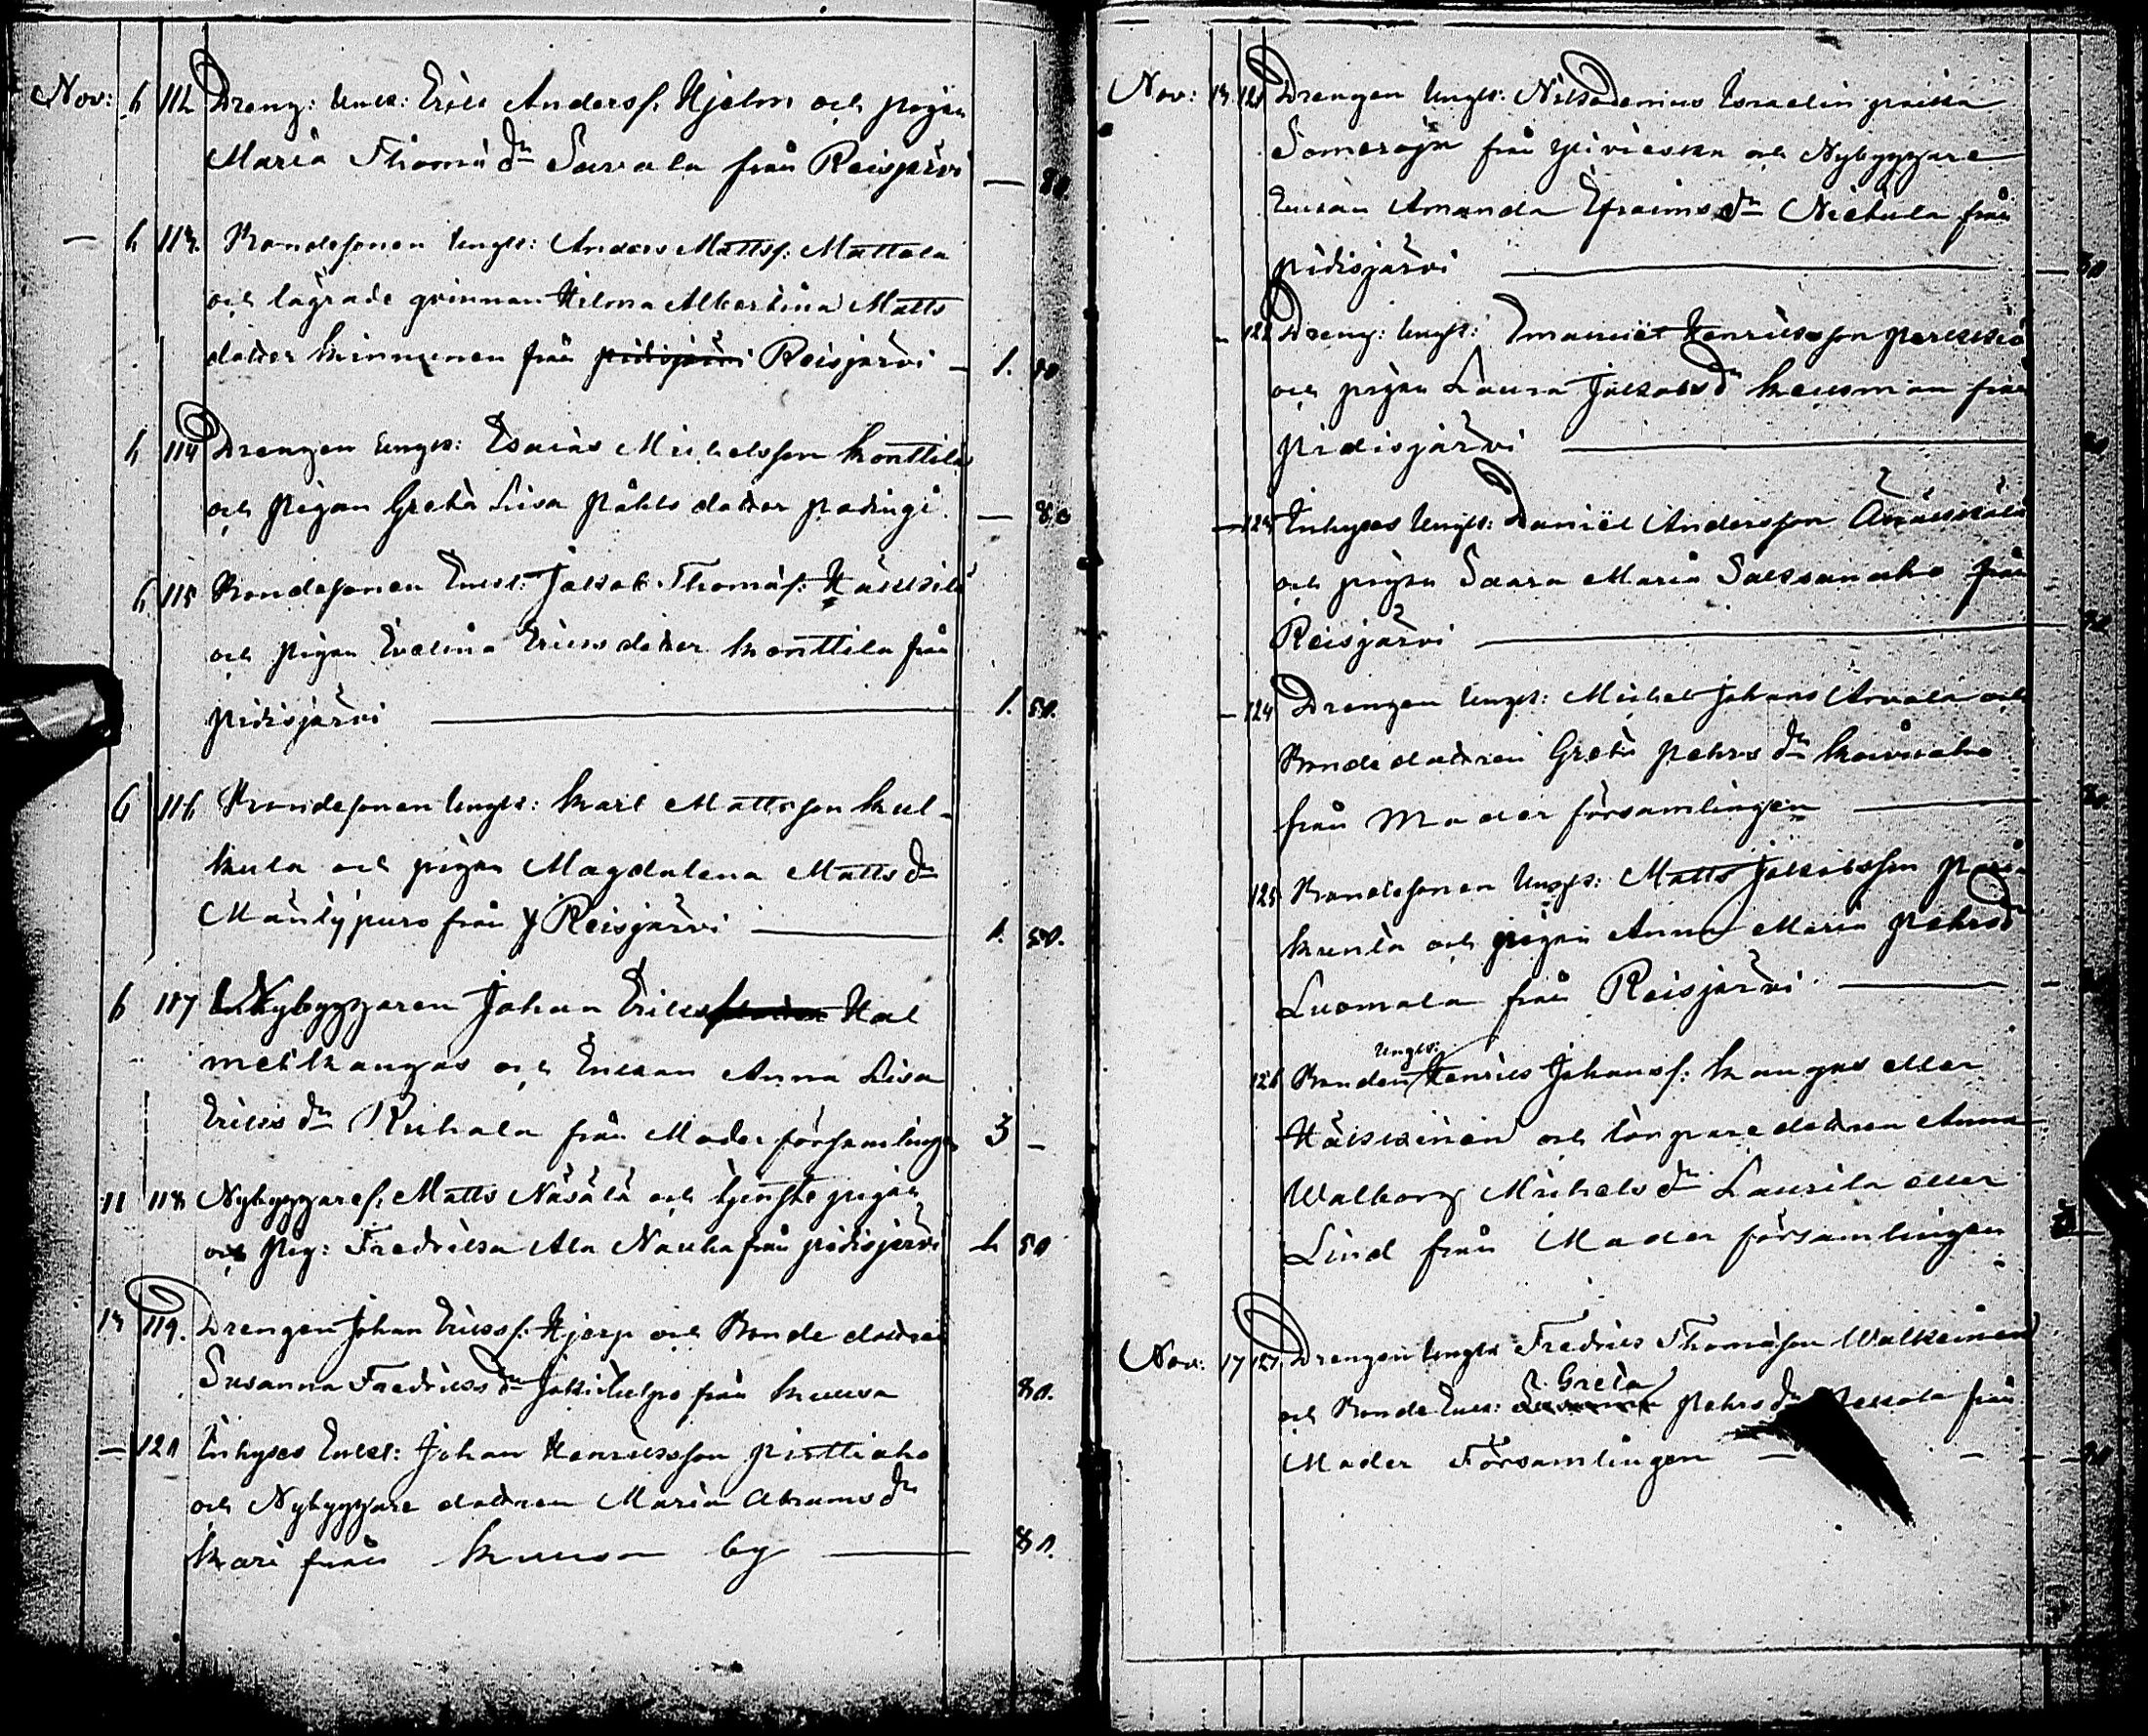 Nov: 6 112 Dreng: Enkl: Erik Anders s. Hjelm och pigan
Maria Thomæ dr Savala från Reisjärvi — 80.
— 6 113. Bondesonen Ungk: Anders Matts s: Mattala
och lägrade qvinnan Hilma Albertina Matts
dotter Kinnunen från Pidisjärvi Reisjärvi — 1. 50
6 114 Drengen Ungk: Esaias Michelsson Konttila
och pigan Greta Lisa Påhls dotter Padingi — 80
6 115 Bondesonen Enkl: Jakob Thomæ s:
och pigan Evelina Eriks dotter Konttila från
Pidisjärvi — 1. 50.
6 116 Bondesonen Ungk: Karl Mattsson Kul-
kula och pigan Magdalena Matts dr
Mäntypuro från Reisjärvi — 1. 50.
6 117 Nybyggaren Johan Eriks Hal
metkangas och Enkan Anna Lisa
Eriks dr Ruhala från Moderförsamlingen 3 —
11 118 Nybyggare s. Matts Näsälä och tjenste pigan
och Pig: Fredrika Ala Nauha från Pidisjärvi 1. 50
13 119. Drengen Johan Eriks s. Hjerp och Bonde dottren
Susanna Fredriks dr från Kuusa 80.
— 120 Inhyses Enkl: Johan Henriksson Pirttiaho
och Nybyggare dottren Maria Abrams dr
Kari från Kuusa by — 80.
Nov: 13. 121 Drengen Ungk: Israelin poika
Someroja från Ylivieska och Nybyggare
Enkan Amanda Efraims dr Niekula från
Pidisjärvi — 80
122 Dreng: Ungk: Imanuel Henriksson
och pigan Laura Jakobs dr Keusman från
Pidisjärvi — 80
— 123 Inhyses Ungk: Daniel Andersson
och pigan Saara Maria Saksanaho från
Reisjärvi — 80
— 124 Drengen Ungk: Michel Johans Arvola och
Bonde dottren Greta Pehrs dr Koivuaho
från Moder församlingen — 80
125 Bondesonen Ungk: Matts Jakobsson
och pigan Anna Maria Pehrs dr
Luomala från Reisjärvi —
Ungk:
126 Bonden Henrik Johans s: Kangas eller
Häikkinen och torpare dottren Anna
Walborg Michels dr Laurila eller
Lind från Moder församlingen
Nov: 17 127. Drengen Ungk Fredrik Thomasson Walkeinen
Greta
och Bonde Enk: Susanna Pehrs dr från
Moder Församlingen — 80